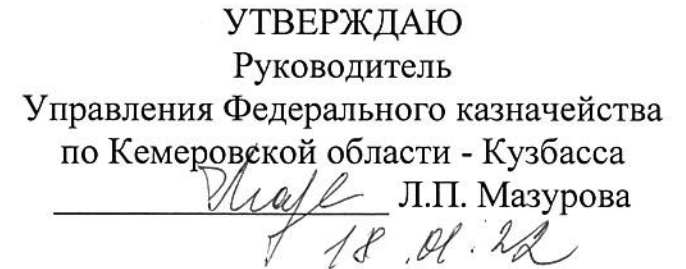 УТВЕРЖДАЮ
Руководитель
Управления Федерального казначейства
по Кемеровской области - Кузбасса
Л.П. Мазурова
18.01.22